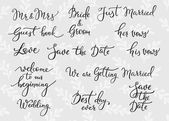 Mr & Mrs
Bride
&
Groom
Just Married
Guest book
his vows
Love
Save the Date
his vows
welcome
to our
beginning
We are Getting Married
Wedding
Best day
ever
Save
the
Date